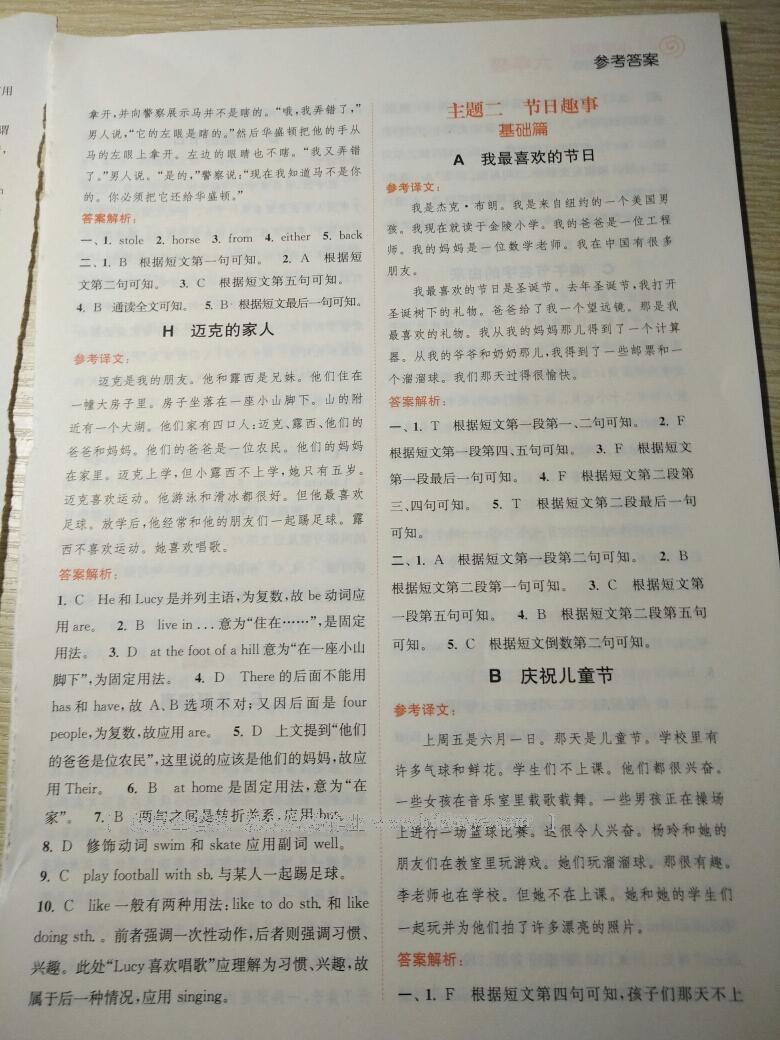 参考答案
拿开，并向警察展示马并不是瞎的。“哦，我弄错了，”
男人说，“它的左眼是瞎的。”然后华盛顿把他的手从
马的左眼上拿开。左边的眼睛也不瞎。“我又弄错
了。”男人说。“是的，”警察说：“现在我知道马不是你
的。你必须把它还给华盛顿。”
答案解析：
一、1. stole 2. horse 3. from 4. either 5. back
二、1. B 根据短文第一句可知。 2. A 根据短
文第二句可知。 3. C 根据短文第五句可知。
4. B 通读全文可知。 5. B 根据短文最后一句可知。
H 迈克的家人
参考译文：
迈克是我的朋友。他和露西是兄妹。他们住在
一幢大房子里。房子坐落在一座小山脚下。山的附
近有一个大湖。他们家有四口人：迈克、露西、他们的
爸爸和妈妈。他们的爸爸是一位农民。他们的妈妈
在家里。迈克上学，但小露西不上学，她只有五岁。
迈克喜欢运动。他游泳和滑冰都很好。但他最喜欢
足球。放学后，他经常和他的朋友们一起踢足球。露
西不喜欢运动。她喜欢唱歌。
答案解析：
1. C He 和 Lucy 是并列主语，为复数，故 be 动词应
用 are。 2. B live in ... 意为“住在……”，是固定
用法。 3. D at the foot of a hill 意为“在一座小山
脚下”，为固定用法。 4. D There 的后面不能用
has 和 have，故 A、B 选项不对；又因后面是 four
people，为复数，故应用 are。 5. D 上文提到“他们
的爸爸是位农民”，这里说的应该是他们的妈妈，故应
用 Their。 6. B at home 是固定用法，意为“在
家”。 7. B 两句之间是转折关系，应用 but。
8. D 修饰动词 swim 和 skate 应用副词 well。
9. C play football with sb. 与某人一起踢足球。
10. C like 一般有两种用法：like to do sth. 和 like
doing sth.。前者强调一次性动作，后者则强调习惯、
兴趣。此处“Lucy 喜欢唱歌”应理解为习惯、兴趣，故
属于后一种情况，应用 singing。
主题二 节日趣事
基础篇
A 我最喜欢的节日
参考译文：
我是杰克·布朗。我是来自纽约的一个美国男
孩。我现在就读于金陵小学。我的爸爸是一位工程
师。我的妈妈是一位数学老师。我在中国有很多
朋友。
我最喜欢的节日是圣诞节。去年圣诞节，我打开
圣诞树下的礼物。爸爸给了我一个望远镜。那是我
最喜欢的礼物。我从我的妈妈那儿得到了一个计算
器。从我的爷爷和奶奶那儿，我得到了一些邮票和一
个溜溜球。我们那天过得很愉快。
答案解析：
一、1. T 根据短文第一段第一、二句可知。 2. F
根据短文第一段第四、五句可知。 3. F 根据短文
第一段最后一句可知。 4. F 根据短文第二段第
三、四句可知。 5. T 根据短文第二段最后一句
可知。
二、1. A 根据短文第一段第二句可知。 2. B
根据短文第二段第一句可知。 3. C 根据短文第
一段第五句可知。 4. B 根据短文第二段第五句
可知。 5. C 根据短文倒数第二句可知。
B 庆祝儿童节
参考译文：
上周五是六月一日。那天是儿童节。学校里有
许多气球和鲜花。学生们不上课。他们都很兴奋。
一些女孩在音乐室里载歌载舞。一些男孩正在操场
上进行一场篮球比赛。这很令人兴奋。杨玲和她的
朋友们在教室里玩游戏。她们玩溜溜球。那很有趣。
李老师也在学校。但她不在上课。她和她的学生们
一起玩并为他们拍了许多漂亮的照片。
答案解析：
一、1. F 根据短文第四句可知，孩子们那天不上